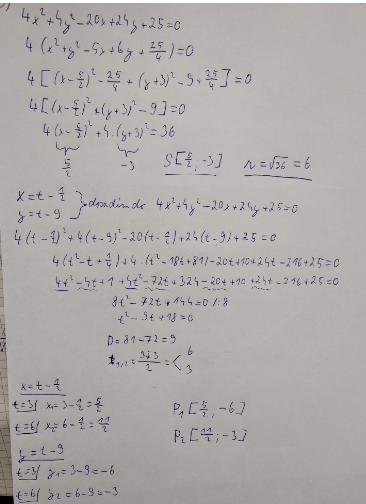 4x² + 4y² - 20x + 24y + 25 = 0
4 (x² + y² - 5x + 6y + 25/4) = 0
4 [(x - 5/2)² - 25/4 + (y+3)² - 9 + 25/4] = 0
4 [(x - 5/2)² + (y+3)² - 9] = 0
4 (x - 5/2)² + 4 · (y+3)² = 36
5/2 -3 S[5/2; -3] r = √36 = 6
x = t - 1/2
y = t - 9 } dosadím do 4x² + 4y² - 20x + 24y + 25 = 0
4 (t - 1/2)² + 4 (t - 9)² - 20 (t - 1/2) + 24 (t - 9) + 25 = 0
4 (t² - t + 1/4) + 4 · (t² - 18t + 81) - 20t + 10 + 24t - 216 + 25 = 0
4t² - 4t + 1 + 4t² - 72t + 324 - 20t + 10 + 24t - 216 + 25 = 0
8t² - 72t + 144 = 0 /:8
t² - 9t + 18 = 0
D = 81 - 72 = 9
t₁,₂ = 9±3/2 = < 6 3
x = t - 1/2
t=3/ x₁ = 3 - 1/2 = 5/2 P₁ [5/2; -6]
t=6/ x₂ = 6 - 1/2 = 11/2 P₂ [11/2; -3]
y = t - 9
t=3/ y₁ = 3 - 9 = -6
t=6/ y₂ = 6 - 9 = -3